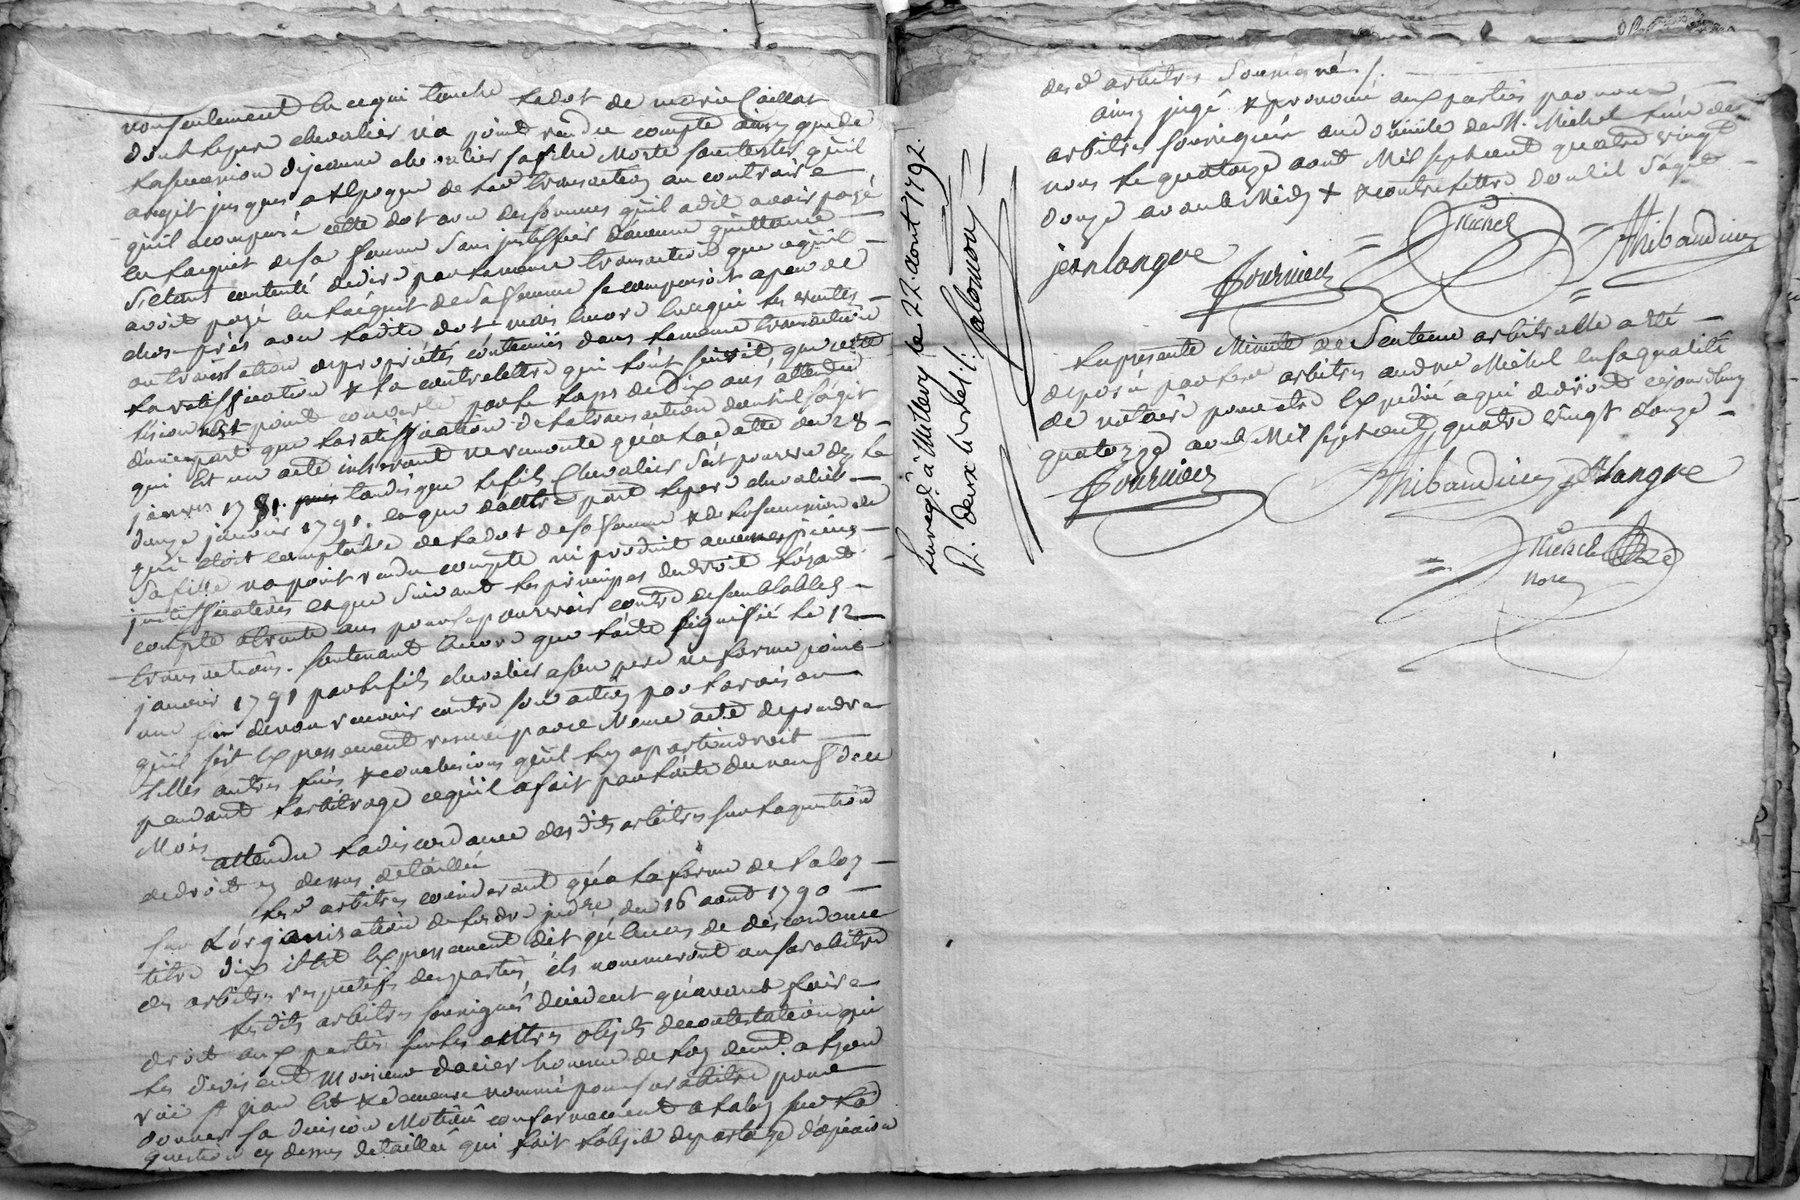 nonseulement en cequi touche La dot de marie Caillat
dont Lepere chevalier n'a point rendu compte ainsy que de
La succession de jeanne chevalier sa fille Morte sans tester qu'il
au contraire
qu'il a compensé cette dot avec des sommes qu'il a dit avoir payé
En Lacquit de sa femme sans justiffier d'aucune quittance
S'etant contenté de dire par La meme transaction que cequil
avoit payé En Lacquit de Sa femme se compensoit a peu de
chose près avec Ladite dot mais Encore En cequi Les ventes
ou translation de propriétés contenües dans La meme transaction
La ratiffication & La contrelettre qui
Lésion n'est point couverte par Le Laps de Dix ans attendu
d'une part que La ratiffication de La transaction dont il s'agit
qui Est un acte inherant ne remonte qu'a La datte du 28
janvier 1781. tandis que Lefils Chevalier s'est pourvu des Le
douze janvier 1791. Et que d'autre part Lepere chevalier
qui etoit comptable de La dot de sa femme & de La succession de
Sa fille n'a point rendu compte ni produit aucunes pieces
justifficatives Et que Suivant Les principes du droit
compte a trente ans pour se pourvoir contre de semblables
transactions. Soutenant Encore que L'acte signiffié Le 12
janvier 1791 par Lefils chevalier a son pere ne forme point
une fin de non recevoir contre son action par La raison
qu'il s'est Expressement reservé par ce Meme acte de prendre
telles autres fins & conclusions qu'il Luy apartiendroit
pendant L'arbitrage cequ'il a fait par L'acte du neuf de ce
Mois
attendu La discordance desdits arbitres sur La question
de droit cy dessus detaillée
Les arbitres considerant qu'a La forme de La loy
sur L'organisation de L'ordre judre du 16 aout 1790
titre dix il Est Expressement dit qu'En cas de discordance
des arbitres respectifs des parties, ils nommeront un surarbitre
Lesdits arbitres soussignés decident qu'avant faire
droit aux parties sur Les autres objets de contestation qui
Les divisent Monsieur dacier homme de Loy demt. a Lyon
rüe St jean Est & demeure nommé pour surarbitre pour
donner sa decision Motivée conformement a La loy sur La
question cy dessus detaillée qui fait L'objet de partage d'opinion
desd. arbitres Soussignés /.
ainsy jugé & prononcé aux parties par nous
arbitres soussignés au domicile de M. Michel L'un de
nous Le quatorze aout Mil sept cent quatre vingt
douze avant Midy & contrelettre dont il s'agit
jean langre
Fournier
Michel
Thibaudier
La presente Minute de Sentence arbitralle a eté
deposée par Les arbitres audit Me Michel En sa qualité
de notaire pour etre Expedié a qui de droit cejourdhuy
quatorze aout Mil sept cent quatre vingt douze
Fournier
Thibaudier
J Langre
Michel
Nore
Enregé. à Millery le 22. aout 1792.
R. deux liv. Salomon